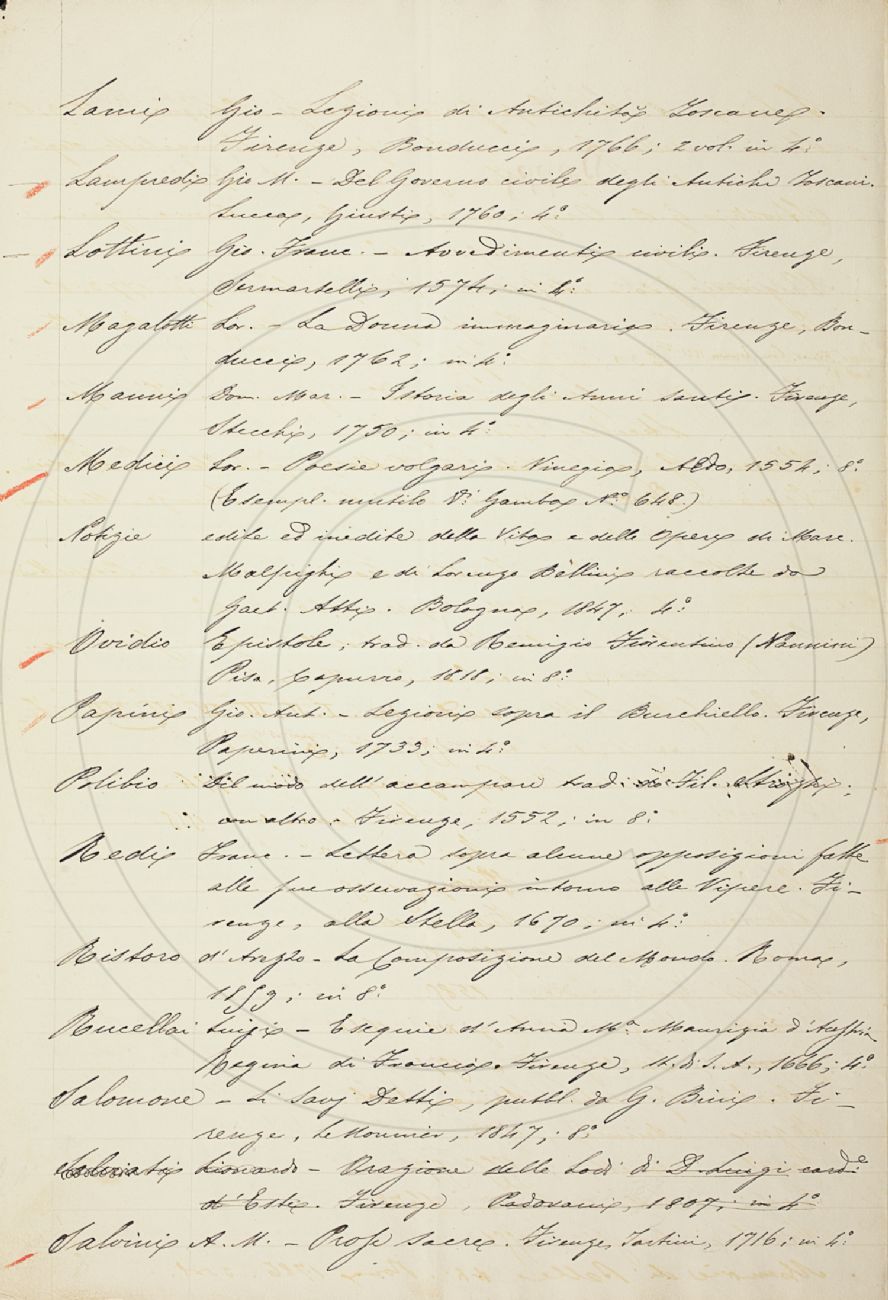 Lami Gio - Lezioni di Antichità Toscane.
Firenze, Bonducci, 1766; 2 vol. in 4.º
Lampredi Gio M. - Del Governo civile degli Antichi Toscani.
Lucca, Giusti, 1760; 4.º
Lottini Gio. Franc. - Avvedimenti civili. Firenze,
Sermartelli, 1574; in 4.º
Magalotti Lor. - La Donna immaginaria. Firenze, Bon-
ducci, 1762; in 4.º
Manni Dom. Mar. - Istoria degli Anni santi. Firenze,
Stecchi, 1750; in 4.º
Medici Lor. - Poesie volgari. Vinegia, Aldo, 1554; 8.º
(Esempl. mutilo Vi. Gamba N.º 648.)
Notizie edite ed inedite della Vita e delle Opere di Marc.
Malpighi e di Lorenzo Bellini raccolte da
Gaet. Atti. Bologna, 1847; 4.º
Ovidio Epistole; trad. da Remigio Fiorentino (Nannini)
Pisa, Capurro, 1818; in 8.º
Papini Gio. Ant. - Lezioni sopra il Burchiello. Firenze,
Paperini, 1733; in 4.º
Polibio Del modo dell' accampare trad. di Fil. Strozzi;
con altro. Firenze, 1552; in 8.º
Redi Franc. - Lettera sopra alcune opposizioni fatte
alle sue osservazioni intorno alle Vipere. Fi-
renze, alla Stella, 1670; in 4.º
Ristoro d'Arezzo - La Composizione del Mondo. Roma,
1859; in 8.º
Rucellai Luigi - Esequie d'Anna M.ª Maurizia d'Austria
Regina di Francia. Firenze, St. di S. A., 1666; 4.º
Salomone - Li Savj Detti, pubbl. da G. Bini. Fi-
renze, Le Monnier, 1847; 8.º
Salviati Lionardo - Orazione delle Lodi di D. Luigi card.
d'Este. Firenze, Padovani, 1807; in 4.º
Salvini A. M. - Prose sacre. Firenze, Tartini, 1716; in 4.º